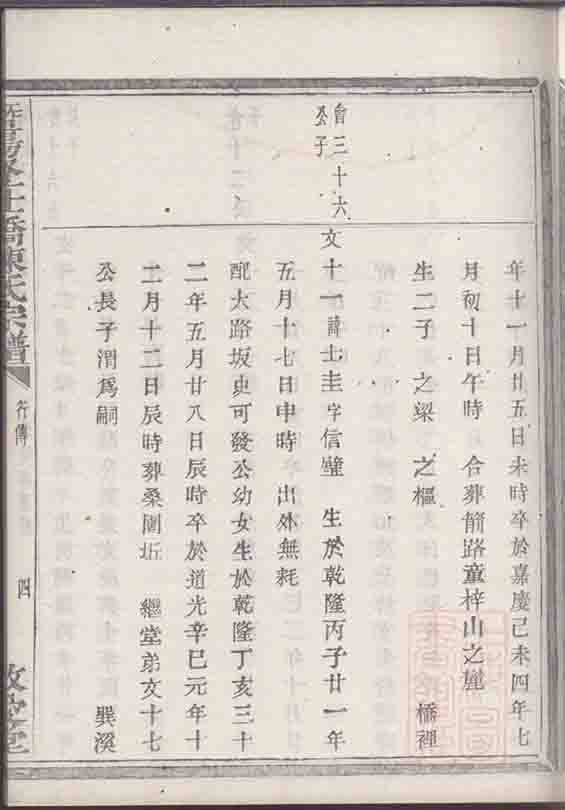 年十一月廿五日未時卒於嘉慶己未四年七
月初十日午時 合葬前路童梓山之麓
生二子 之梁 之樞 橋裡
自三十六
公子
文十一諱士圭字信璧 生於乾隆丙子廿一年
五月十七日申時 出外無耗
配大路坂史可發公幼女生於乾隆丁亥三十
二年五月廿八日辰時卒於道光辛巳元年十
二月十二日辰時葬桑園坵 繼堂弟文十七
公長子渭爲嗣 巽溪
橋陳氏宗譜
行傳
四